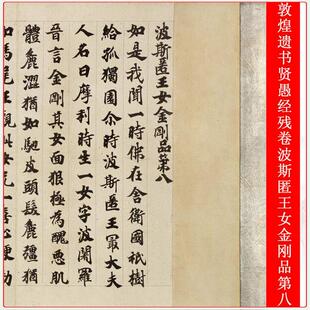 敦煌遗书贤愚经残卷波斯匿王女金刚品第八
波斯匿王女金剛品第八
如是我聞一時佛在舍衛國祇樹
給孤獨園尒時波斯匿王㝡大夫
人名曰摩利時生一女字波闍羅
晉言金剛其女面狠極為醜惡肌
體麁澀猶如駝皮頭髮麁彊猶
如馬尾王觀此女无一喜心便勅